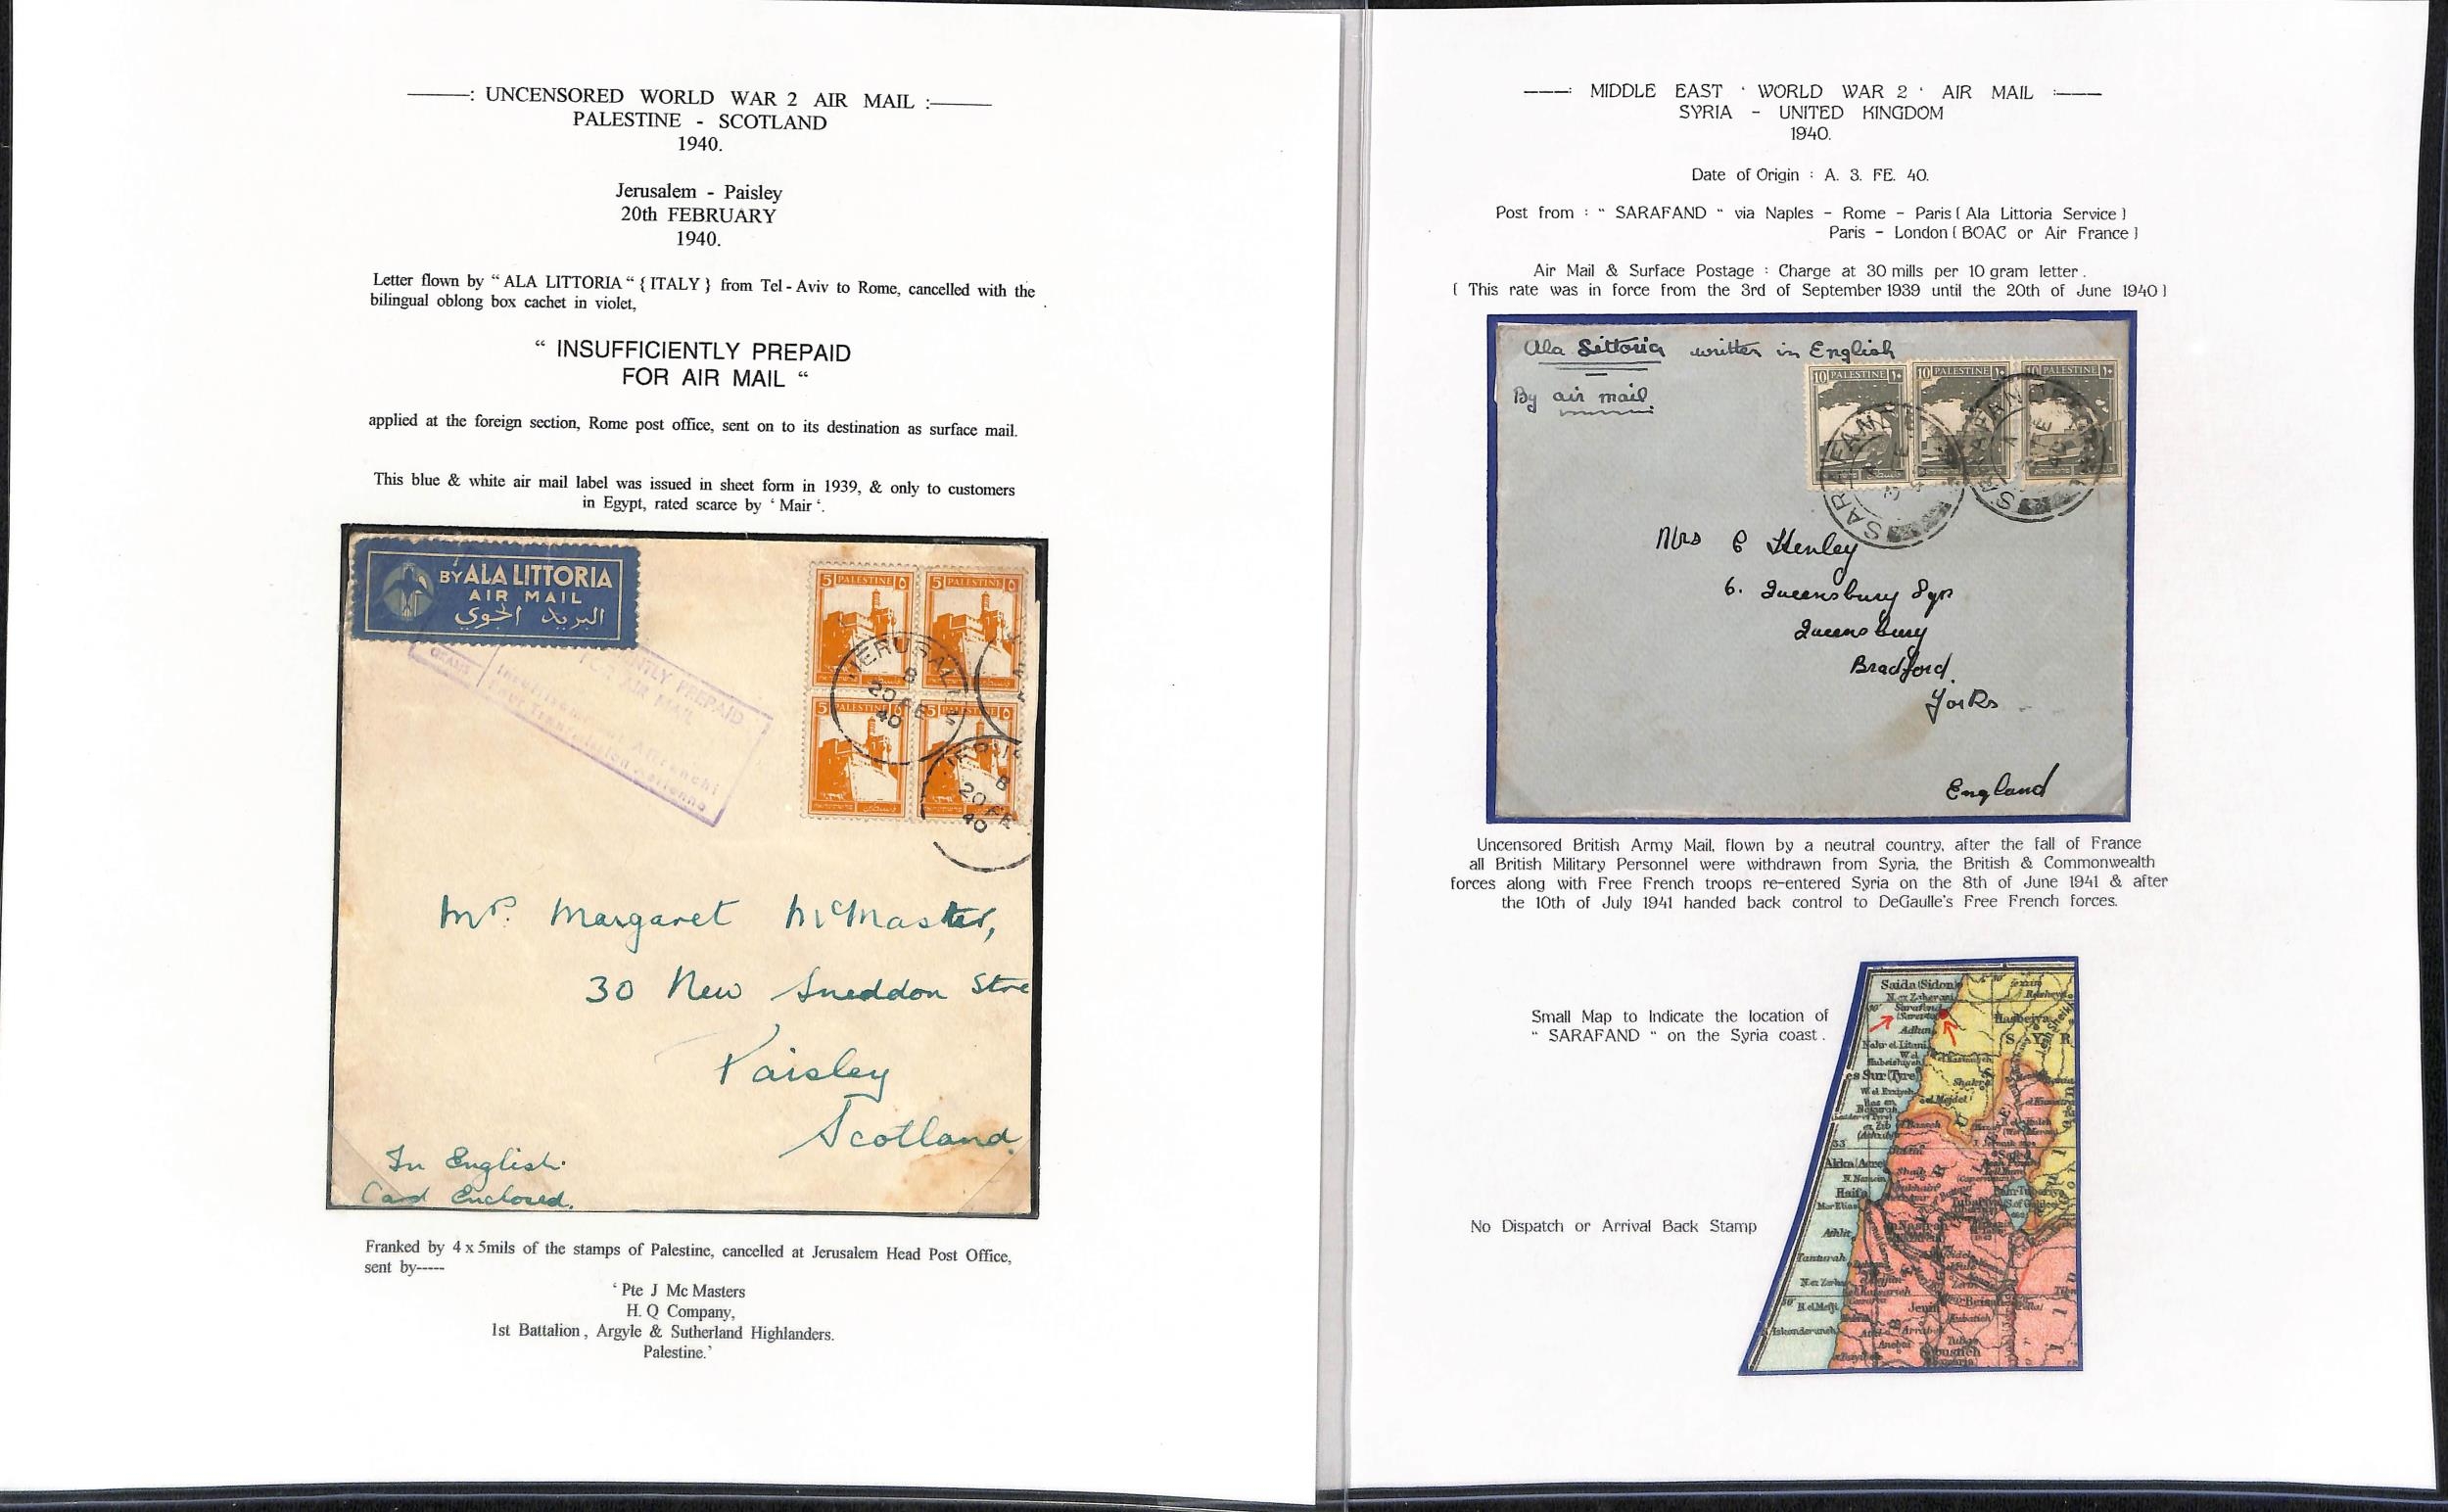 ———: UNCENSORED WORLD WAR 2 AIR MAIL :———
PALESTINE - SCOTLAND
1940.
Jerusalem - Paisley
20th FEBRUARY
1940.
Letter flown by “ ALA LITTORIA “ { ITALY } from Tel - Aviv to Rome, cancelled with the
bilingual oblong box cachet in violet,
“ INSUFFICIENTLY PREPAID
FOR AIR MAIL “
applied at the foreign section, Rome post office, sent on to its destination as surface mail.
This blue & white air mail label was issued in sheet form in 1939, & only to customers
in Egypt, rated scarce by ‘ Mair ‘.
BY ALA LITTORIA
AIR MAIL
البريد الجوي
5 PALESTINE ٥
5 PALESTINE ٥
5 PALESTINE ٥
5 PALESTINE ٥
JERUSALEM
B
20 FE
40
B
20 FE
40
NTLY PREPAID
FOR AIR MAIL
Affranchi
Pour Transmission Aerienne
Margaret McMaster,
30 New Sneddon Stre
Paisley
Scotland.
In English.
Card Enclosed.
Franked by 4 x 5mils of the stamps of Palestine, cancelled at Jerusalem Head Post Office,
sent by-----
‘ Pte J Mc Masters
H. Q Company,
1st Battalion , Argyle & Sutherland Highlanders.
Palestine.’
———: MIDDLE EAST ‘ WORLD WAR 2 ‘ AIR MAIL :———
SYRIA - UNITED KINGDOM
1940.
Date of Origin : A. 3. FE. 40.
Post from : “ SARAFAND “ via Naples - Rome - Paris ( Ala Littoria Service )
Paris - London ( BOAC or Air France )
Air Mail & Surface Postage : Charge at 30 mills per 10 gram letter .
( This rate was in force from the 3rd of September 1939 until the 20th of June 1940 )
Ala Littoria written in English
By air mail
10 PALESTINE ١٠
10 PALESTINE ١٠
10 PALESTINE ١٠
SARAFAND
Mrs E Henley
6. Queensbury Sqr
Queensbury
Bradford.
Yorks
England
Uncensored British Army Mail, flown by a neutral country, after the fall of France
all British Military Personnel were withdrawn from Syria, the British & Commonwealth
forces along with Free French troops re-entered Syria on the 8th of June 1941 & after
the 10th of July 1941 handed back control to DeGaulle's Free French forces.
Small Map to Indicate the location of
“ SARAFAND “ on the Syria coast .
No Dispatch or Arrival Back Stamp
Saida (Sidon)
Sarafend
Adlun
Nahr el Litani
es Sur (Tyre)
Akka (Acre)
Haifa
Athlit
Tanturah
Jenin